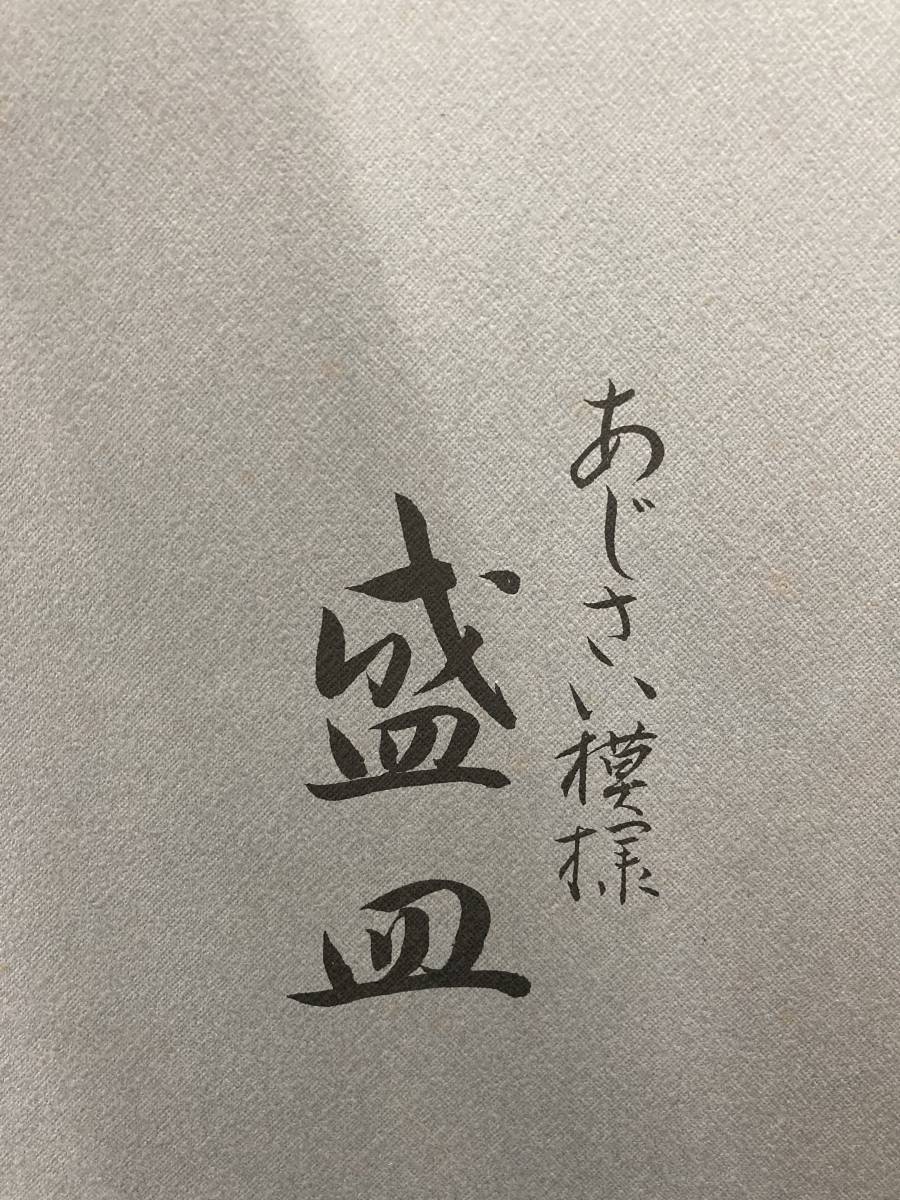 あじさい模様
盛皿